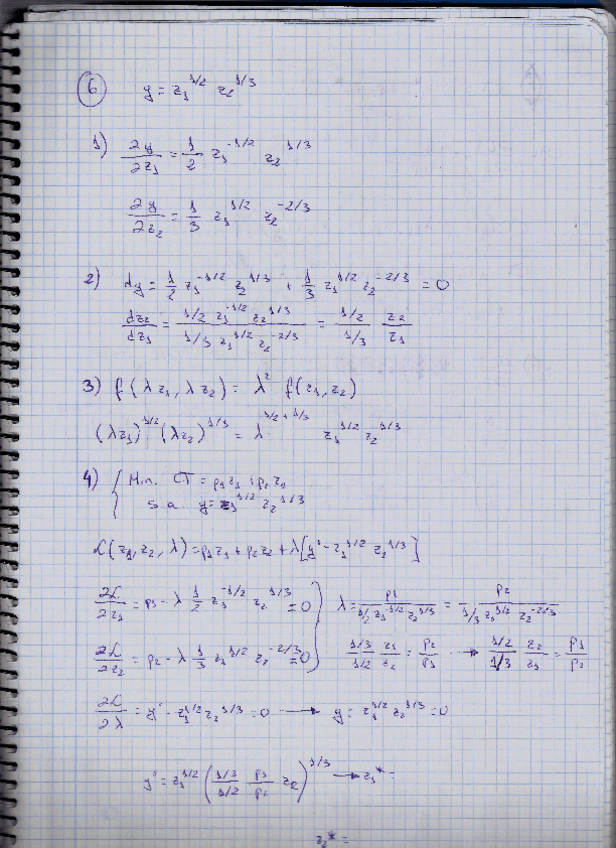 6 y = z₁^1/2 z₂^1/3
1) ∂y/∂z₁ = 1/2 z₁^-1/2 z₂^1/3
∂y/∂z₂ = 1/3 z₁^1/2 z₂^-2/3
2) dy = 1/2 z₁^-1/2 z₂^1/3 + 1/3 z₁^1/2 z₂^-2/3 = 0
dz₂/dz₁ = (1/2 z₁^-1/2 z₂^1/3)/(1/3 z₁^1/2 z₂^-2/3) = (1/2)/(1/3) z₂/z₁
3) f(λz₁, λz₂) = λ^r f(z₁, z₂)
(λz₁)^1/2 (λz₂)^1/3 = λ^1/2+1/3 z₁^1/2 z₂^1/3
4) { Min. CT = p₁z₁ + p₂z₂
s.a. y = z₁^1/2 z₂^1/3
ℒ(z₁, z₂, λ) = p₁z₁ + p₂z₂ + λ[y° - z₁^1/2 z₂^1/3]
∂ℒ/∂z₁ = p₁ - λ 1/2 z₁^-1/2 z₂^1/3 = 0 } λ = p₁/(1/2 z₁^-1/2 z₂^1/3) = p₂/(1/3 z₁^1/2 z₂^-2/3)
∂ℒ/∂z₂ = p₂ - λ 1/3 z₁^1/2 z₂^-2/3 = 0 (1/3)/(1/2) z₁/z₂ = p₂/p₁ → (1/2)/(1/3) z₂/z₁ = p₁/p₂
∂ℒ/∂λ = y° - z₁^1/2 z₂^1/3 = 0 → y = z₁^1/2 z₂^1/3 = 0
y° = z₁^1/2 ((1/3)/(1/2) p₁/p₂ z₂)^1/3 → z₁* =
z₂* =